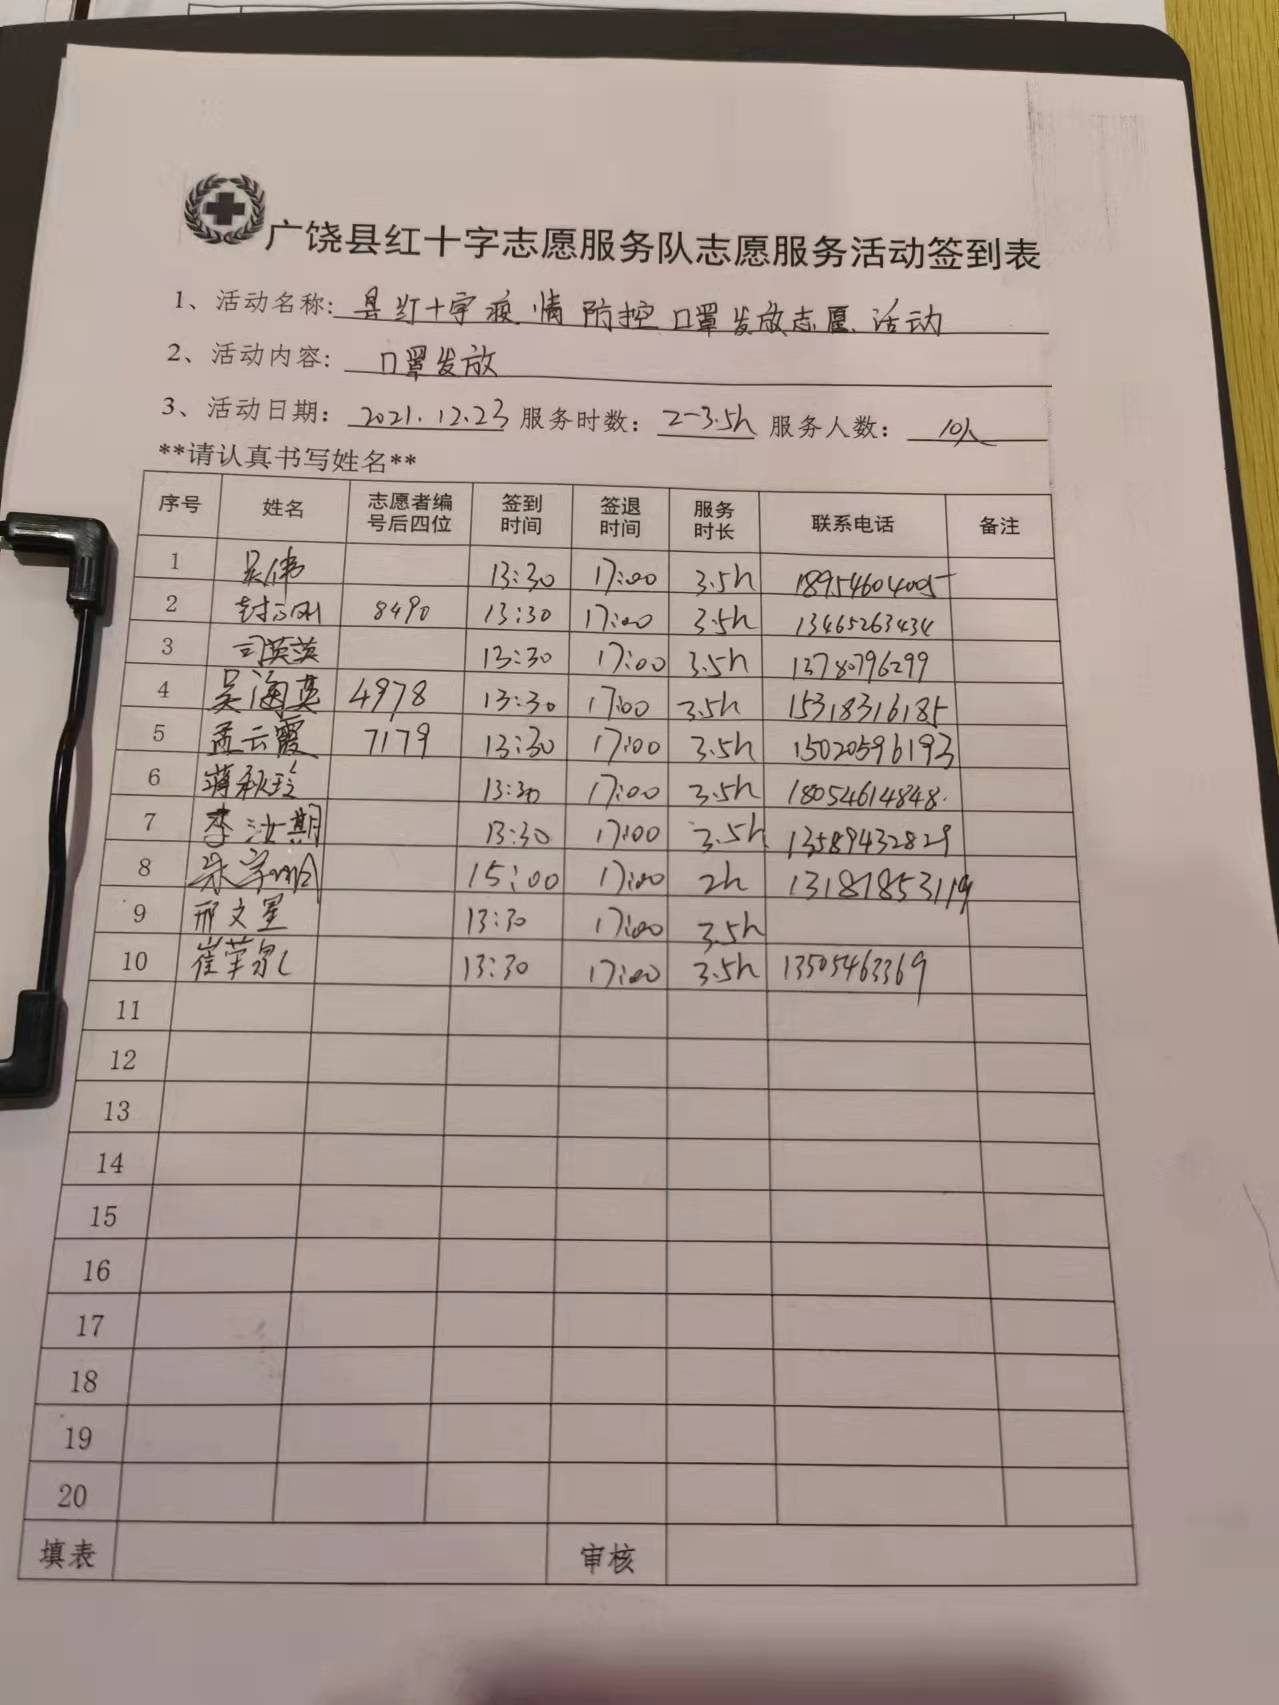 广饶县红十字志愿服务队志愿服务活动签到表
1、活动名称: 县红十字疫情防控口罩发放志愿活动
2、活动内容: 口罩发放
3、活动日期: 2021.12.23 服务时数: 2-3.5h 服务人数: 10人
**请认真书写姓名**
序号 姓名 志愿者编号后四位 签到时间 签退时间 服务时长 联系电话 备注
1 吴伟 13:30 17:00 3.5h 18954604005
2 8490 13:30 17:00 3.5h 13465263434
3 司英英 13:30 17:00 3.5h 13780796299
4 吴海英 4978 13:30 17:00 3.5h 15318316185
5 孟云霞 7179 13:30 17:00 3.5h 15020596193
6 蒋秋玲 13:30 17:00 3.5h 18054614848
7 李汝期 13:30 17:00 3.5h 13589432829
8 15:00 17:00 2h 13181853119
9 邢文星 13:30 17:00 3.5h
10 13:30 17:00 3.5h 13505463369
11
12
13
14
15
16
17
18
19
20
填表 审核